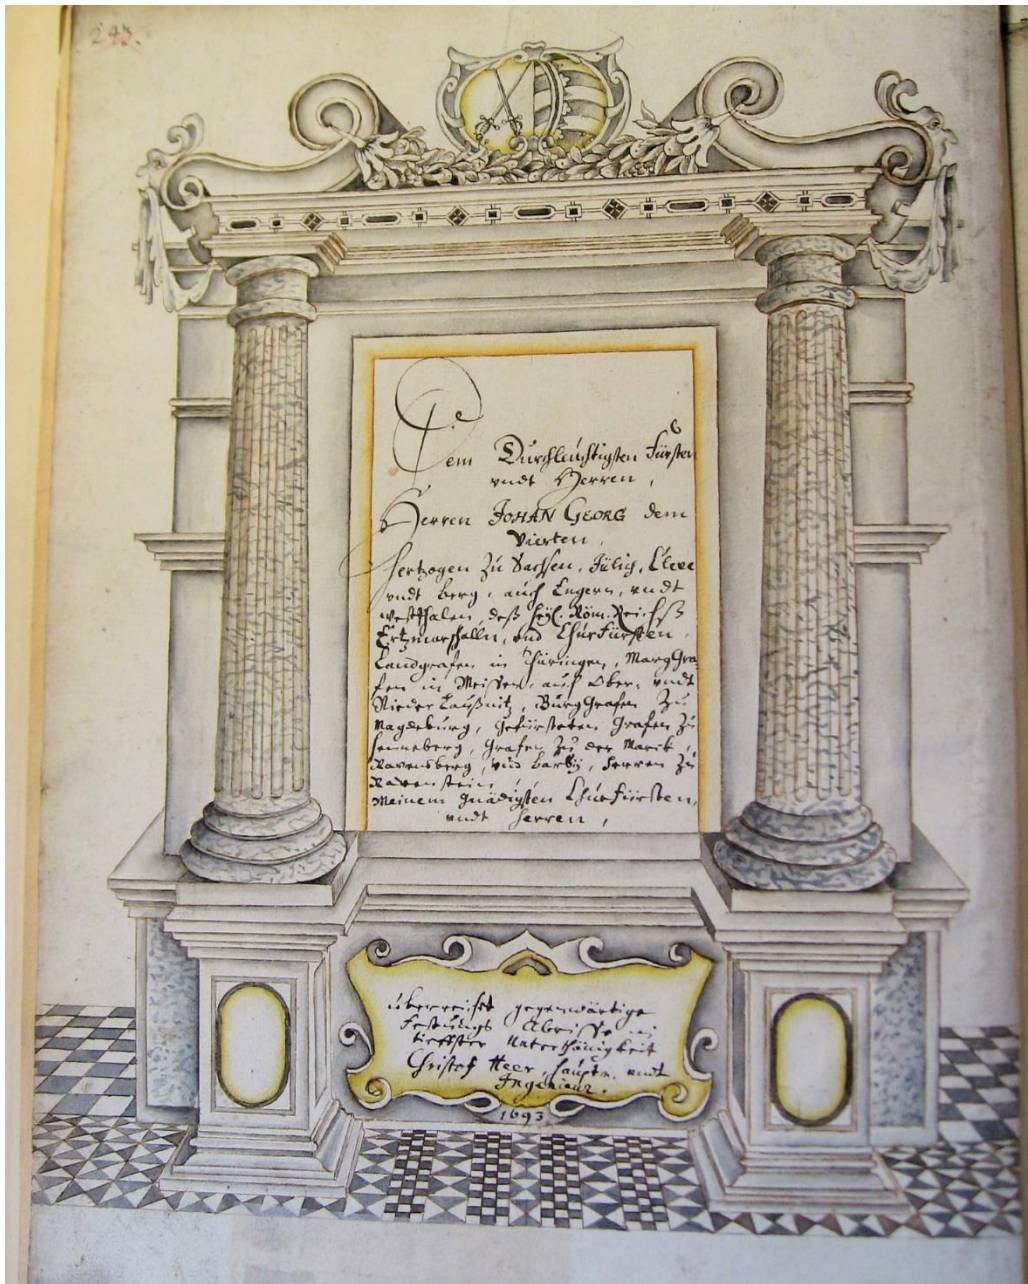 247.
Dem Durchleuchtigsten Fürsten
vndt Herren,
Herren JOHAN GEORG dem
Vierten,
Hertzogen zu Sachsen, Jülig, Cleve
vndt Berg, auch Engern, vndt
Westphalen, deß Heyl. Röm. Reichß
Ertzmarschalln, vnd Churfürsten,
Landgrafen in Thüringen, MargGra
fen in Meissen, auch Ober, vndt
Nieder Laußnitz, BurgGrafen zu
Magdeburg, Gefürsteten Grafen zu
Henneberg, Grafen zu der Marck,
Ravensberg, vnd Barby, Herren zu
Ravenstein,
Meinem gnädigsten Churfürsten,
vndt Herren,
überreicht gegenwärtige
Festungs Abrisse in
tieffster Unterthänigkeit
Christof Heer, Hauptm. vndt
Ingenieur.
1693